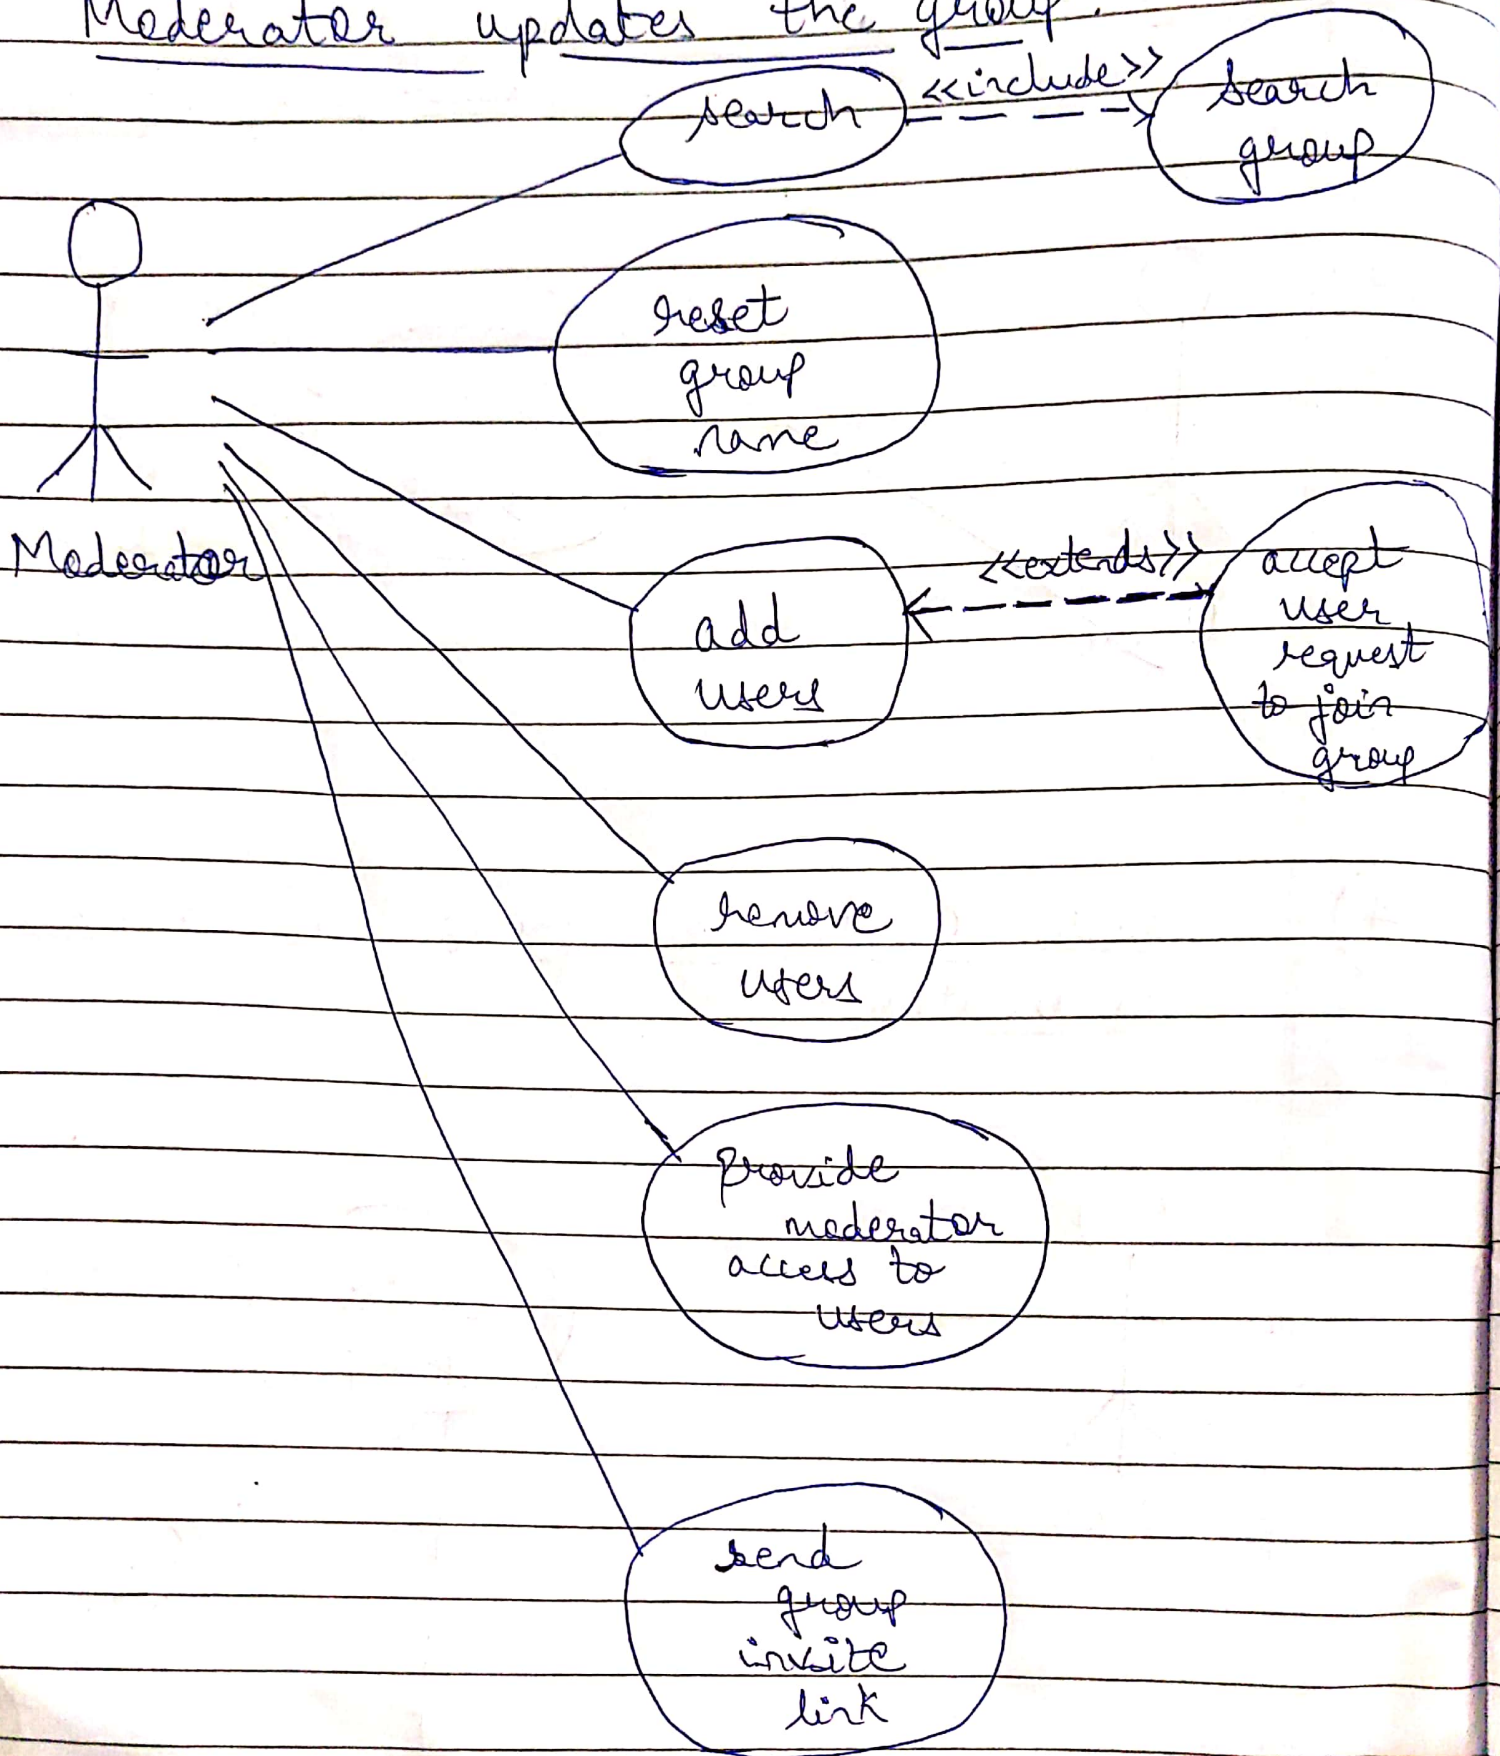 Moderator updates the group.
search
<<include>>
search
group
reset
group
name
Moderator
add
users
<<extends>>
accept
user
request
to join
group
remove
users
provide
moderator
access to
users
send
group
invite
link